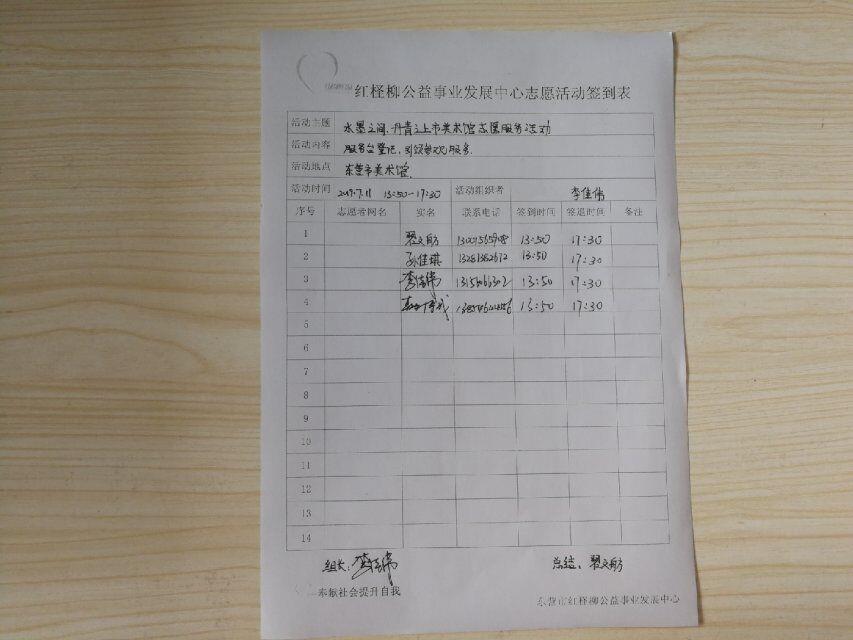 红柽柳公益事业发展中心志愿活动签到表
活动主题 水墨之间,丹青之上市美术馆志愿服务活动
活动内容 服务台登记,引领参观服务.
活动地点 东营市美术馆.
活动时间 2019.7.11 13:50-17:30 活动组织者 李佳伟
序号 志愿者网名 实名 联系电话 签到时间 签退时间 备注
1 翟文舫 13:50 17:30
2 孙佳琪 13281382672 13:50 17:30
3 李佳伟 13:50 17:30
4 13:50 17:30
5
6
7
8
9
10
11
12
13
14
组长:李佳伟 总结:翟文舫
奉献社会提升自我 东营市红柽柳公益事业发展中心